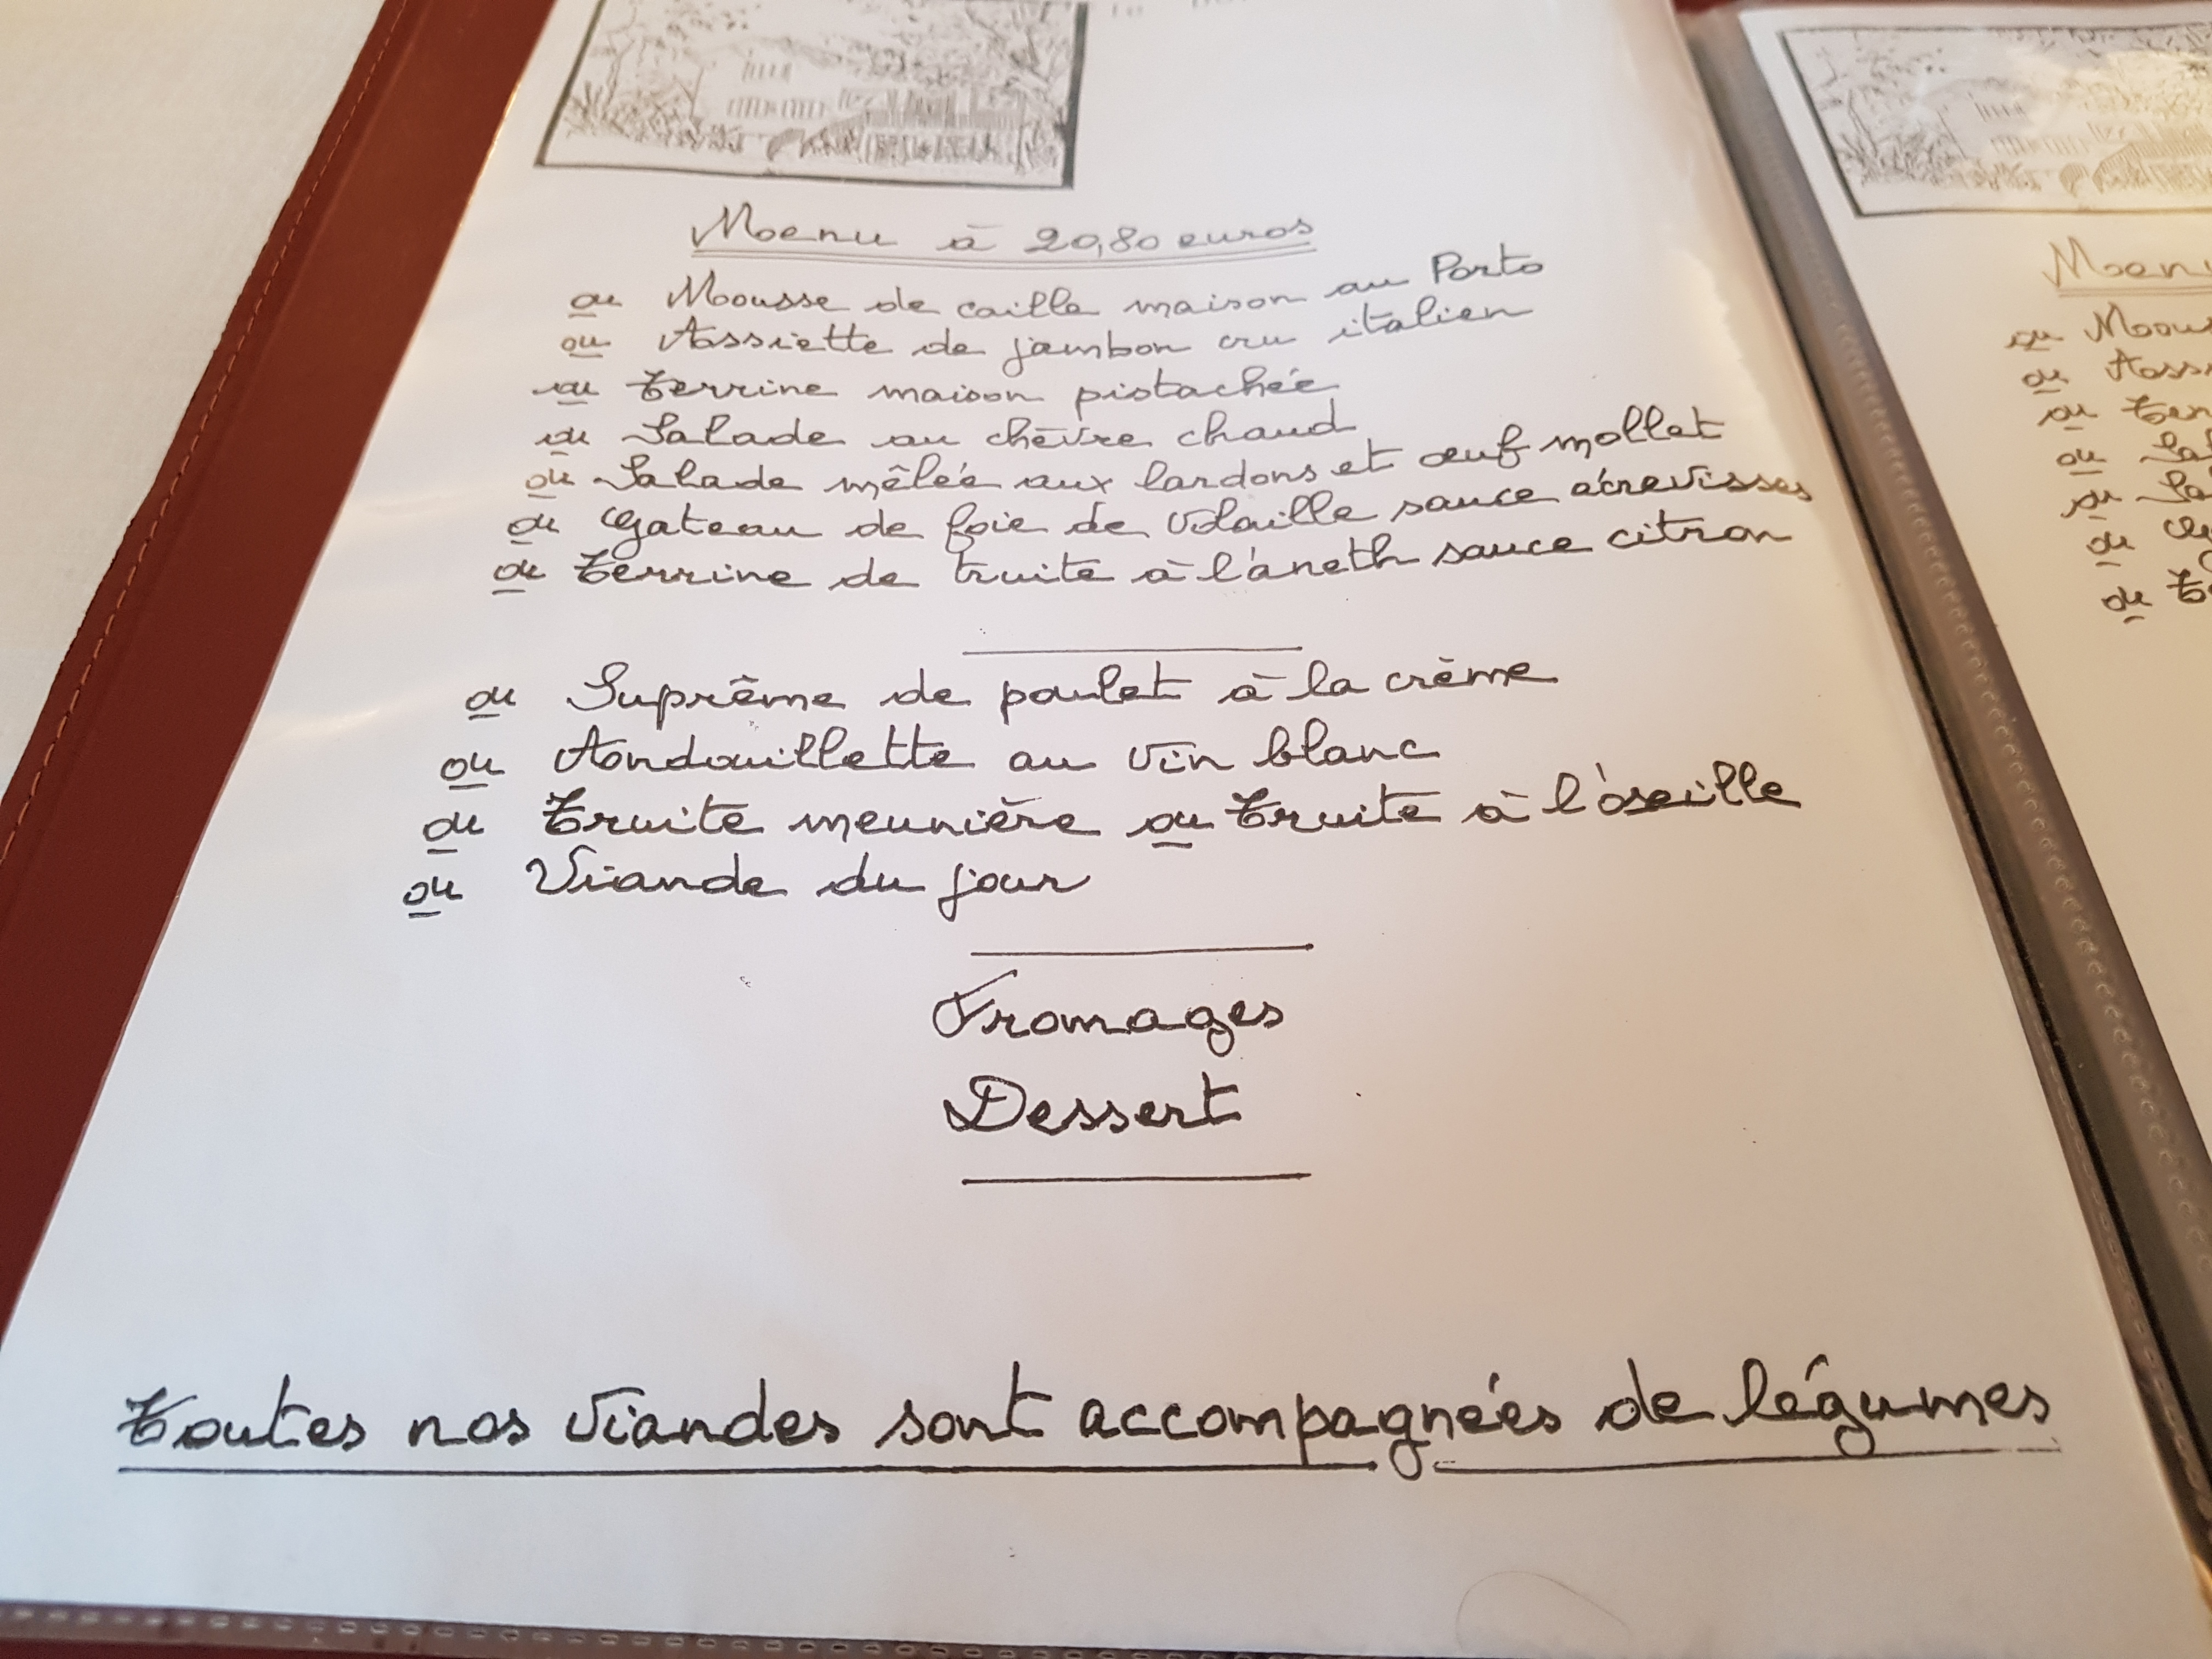 Menu à 20,80 euros
ou Mousse de caille maison au Porto
ou Assiette de jambon cru italien
ou Terrine maison pistachée
ou Salade au chèvre chaud
ou Salade mêlée aux lardons et œuf mollet
ou Gateau de foie de volaille sauce écrevisses
ou Terrine de truite à l'aneth sauce citron
ou Suprême de poulet à la crème
ou Andouillette au vin blanc
ou Truite meunière ou Truite à l'oseille
ou Viande du jour
Fromages
Dessert
Toutes nos viandes sont accompagnées de légumes
Menu
ou
ou
ou
ou
ou
ou
ou